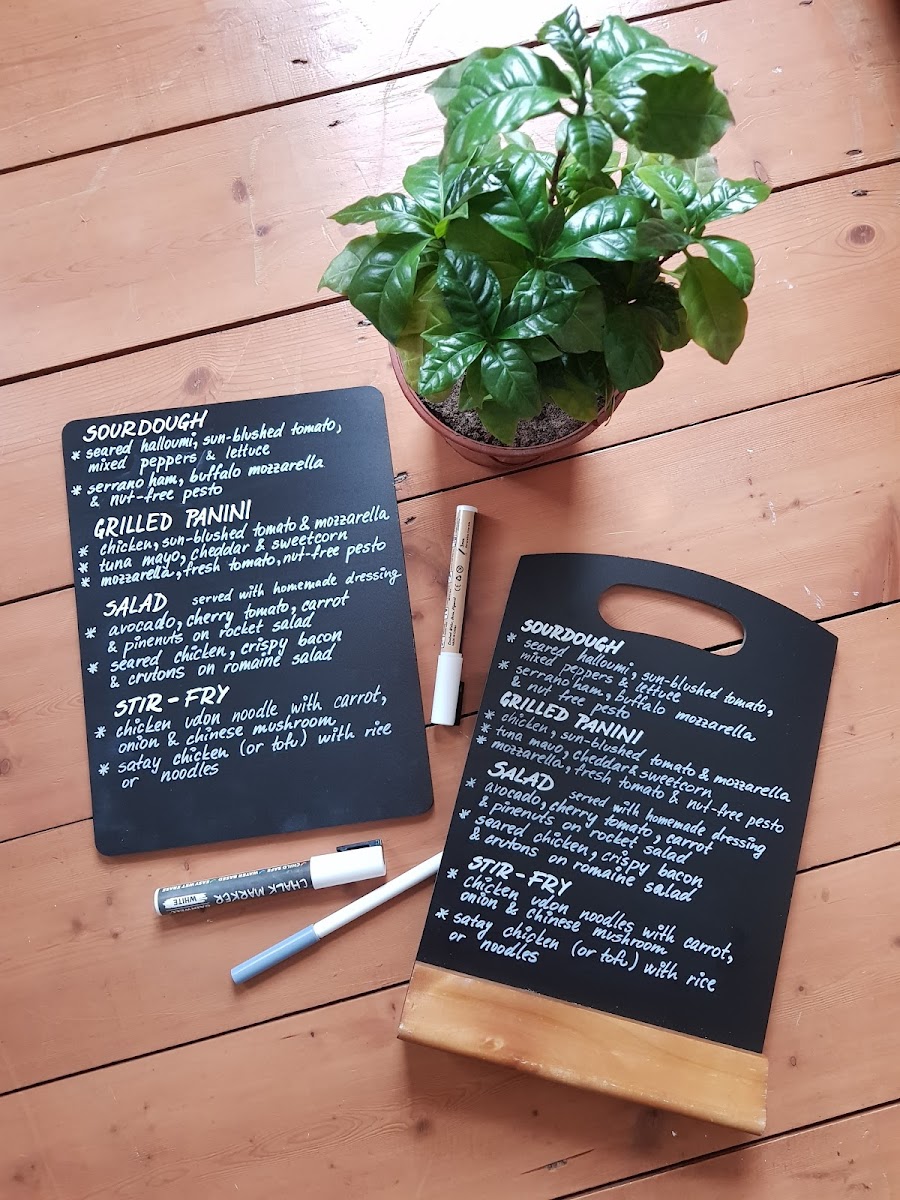 SOURDOUGH
* seared halloumi, sun-blushed tomato,
mixed peppers & lettuce
* serrano ham, buffalo mozzarella
& nut-free pesto
GRILLED PANINI
* chicken, sun-blushed tomato & mozzarella
* tuna mayo, cheddar & sweetcorn
* mozzarella, fresh tomato, nut-free pesto
SALAD served with homemade dressing
* avocado, cherry tomato, carrot
& pinenuts on rocket salad
* seared chicken, crispy bacon
& crutons on romaine salad
STIR-FRY
* chicken udon noodle with carrot,
onion & chinese mushroom
* satay chicken (or tofu) with rice
or noodles
CHALK MARKER
WHITE
SOURDOUGH
* seared halloumi, sun-blushed tomato,
mixed peppers & lettuce
* serrano ham, buffalo mozzarella
& nut free pesto
GRILLED PANINI
* chicken, sun-blushed tomato & mozzarella
* tuna mayo, cheddar & sweetcorn
* mozzarella, fresh tomato & nut-free pesto
SALAD served with homemade dressing
* avocado, cherry tomato, carrot
& pinenuts on rocket salad
* seared chicken, crispy bacon
& crutons on romaine salad
STIR-FRY
* chicken udon noodles with carrot,
onion & chinese mushroom
* satay chicken (or tofu) with rice
or noodles